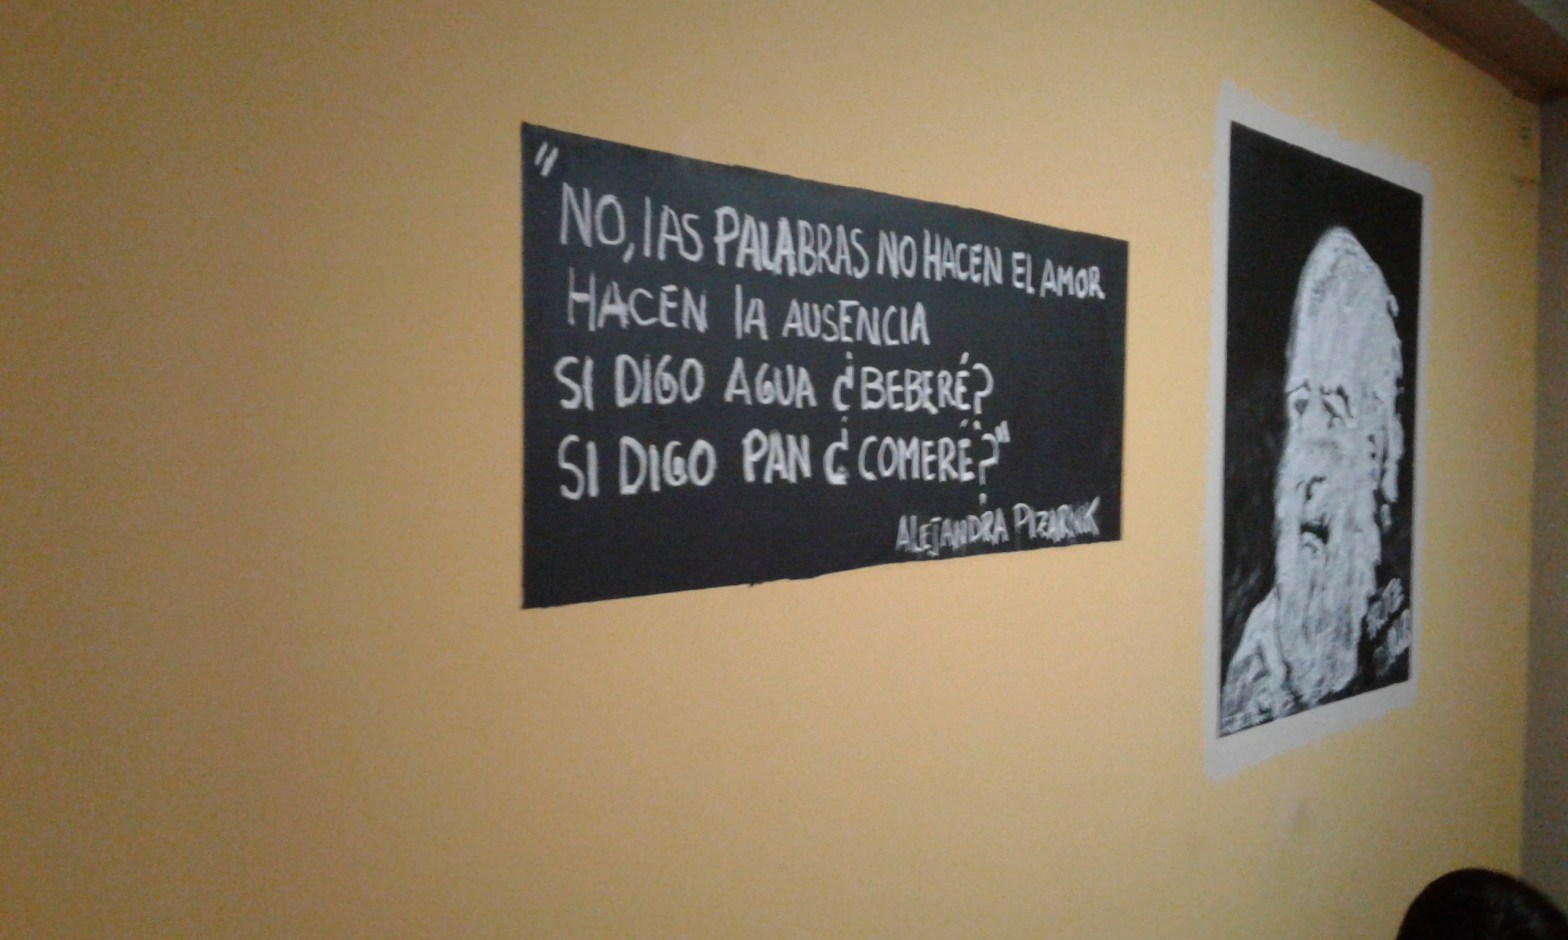 "
NO, lAS PALABRAS NO HACEN EL AMOR
HACEN lA AUSENCIA
SI DIGO AGUA ¿BEBERÉ?
SI DIGO PAN ¿COMERÉ?"
ALEJANDRA PIZARNIK